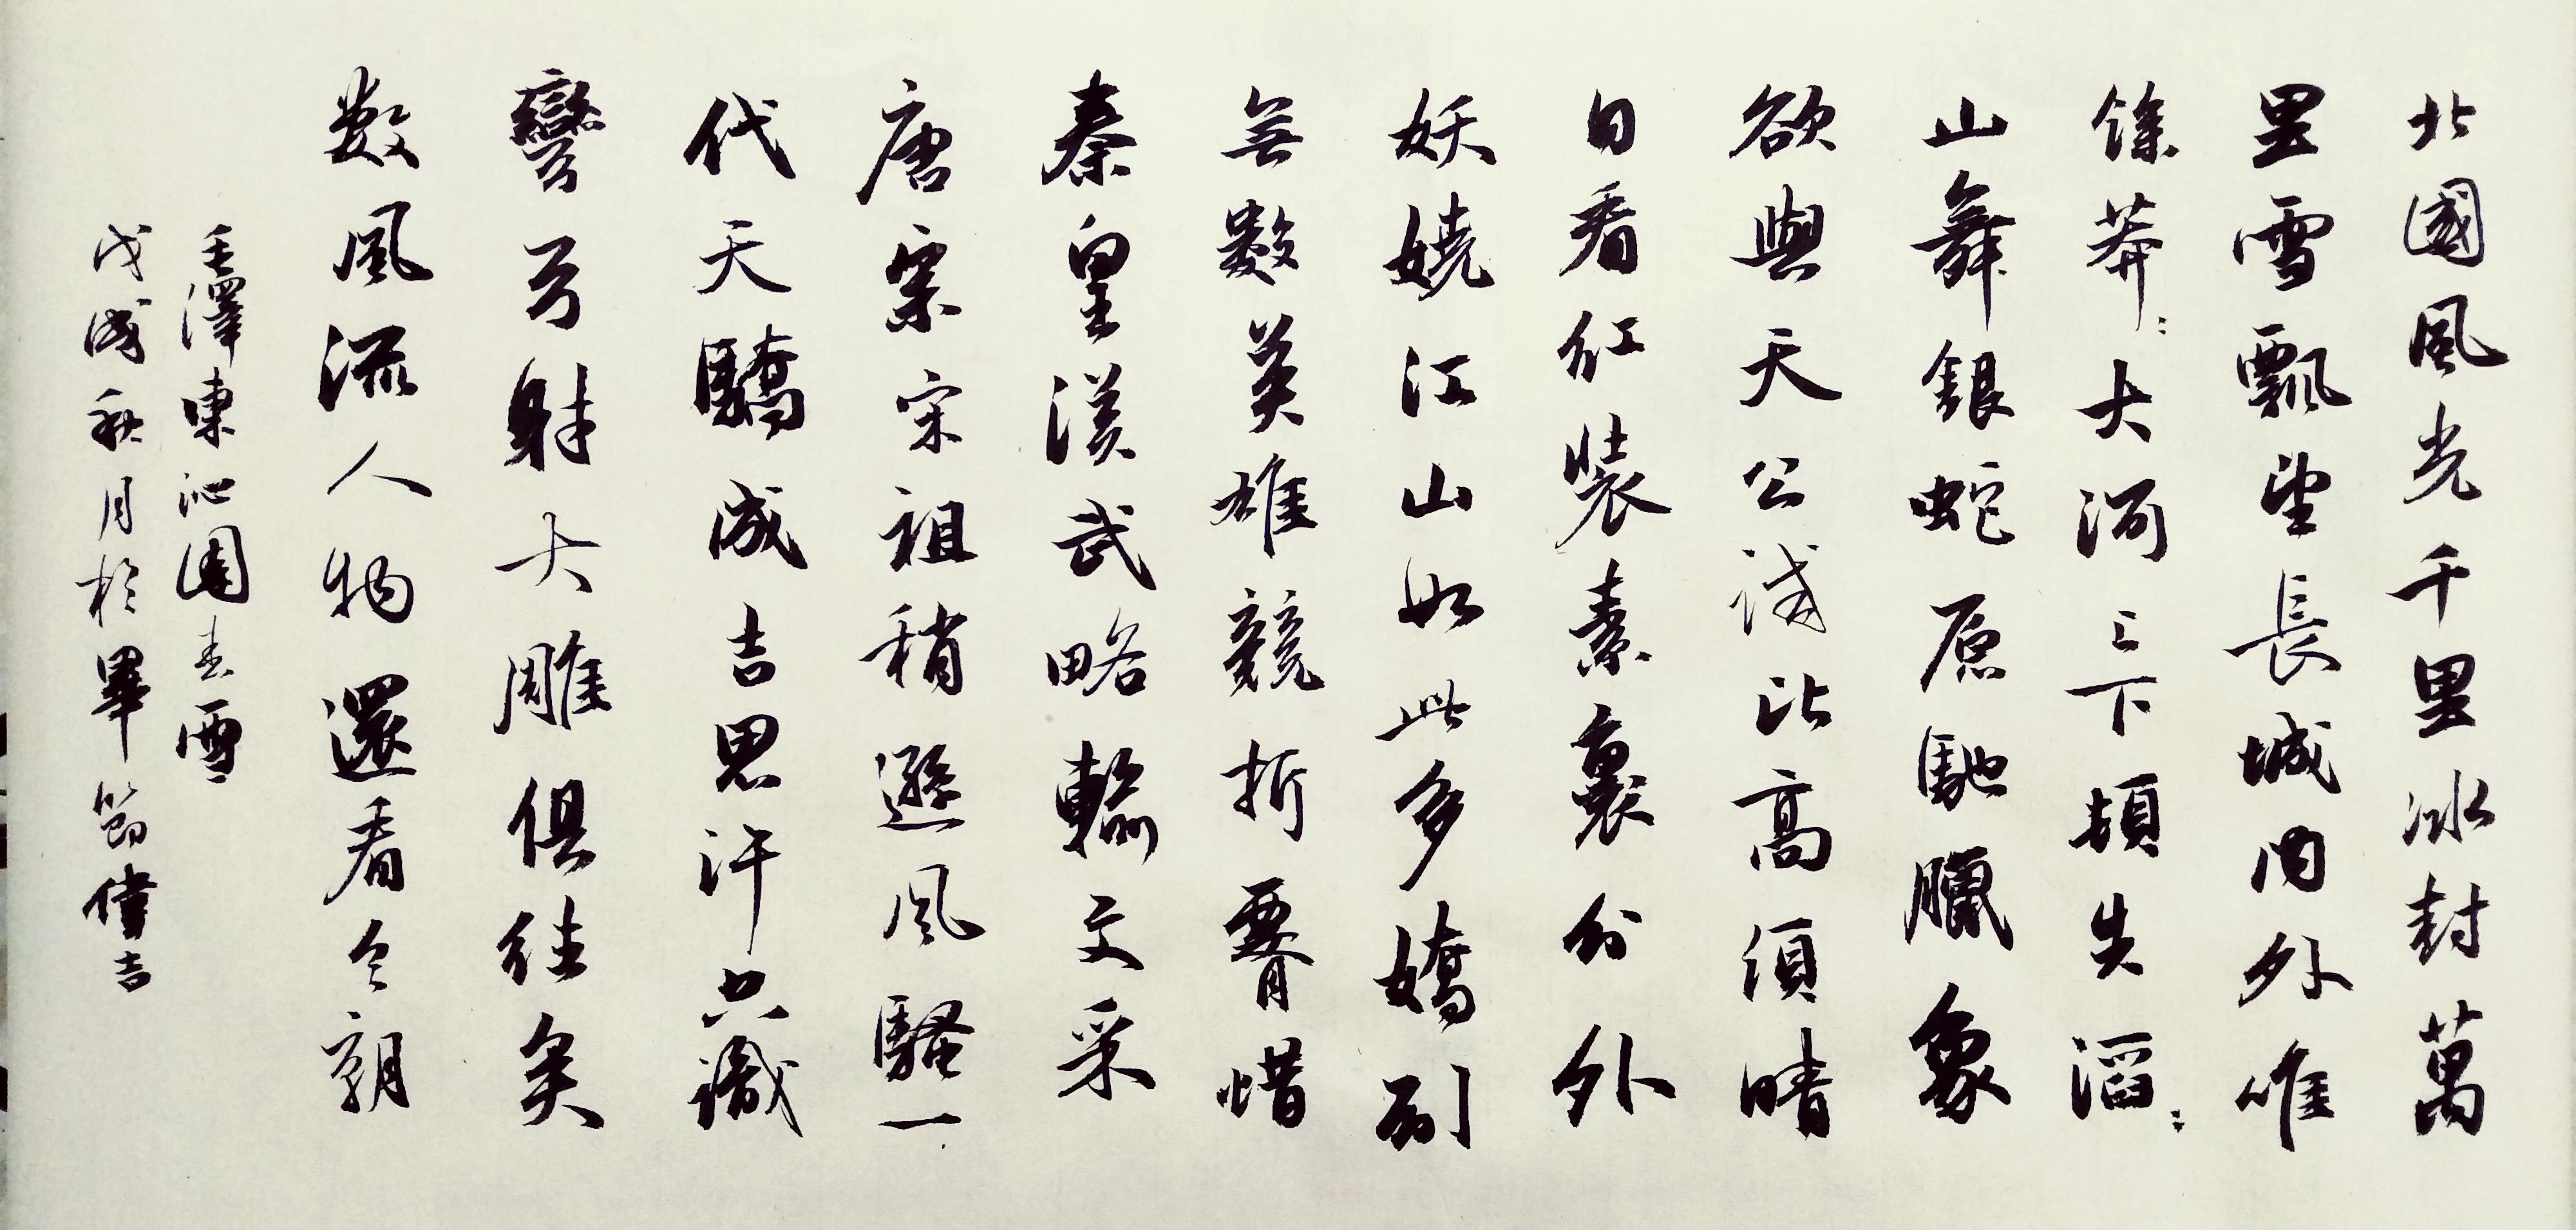 北國風光千里冰封萬
里雪飄望長城內外唯
餘莽〻大河上下頓失滔〻
山舞銀蛇原馳臘象
欲與天公試比高須晴
日看紅裝素裹分外
妖嬈江山如此多嬌引
無數英雄競折腰惜
秦皇漢武略輸文采
唐宗宋祖稍遜風騷一
代天驕成吉思汗只識
彎弓射大雕俱往矣
數風流人物還看今朝
毛澤東沁園春雪
戊戌秋月於畢節偉吉